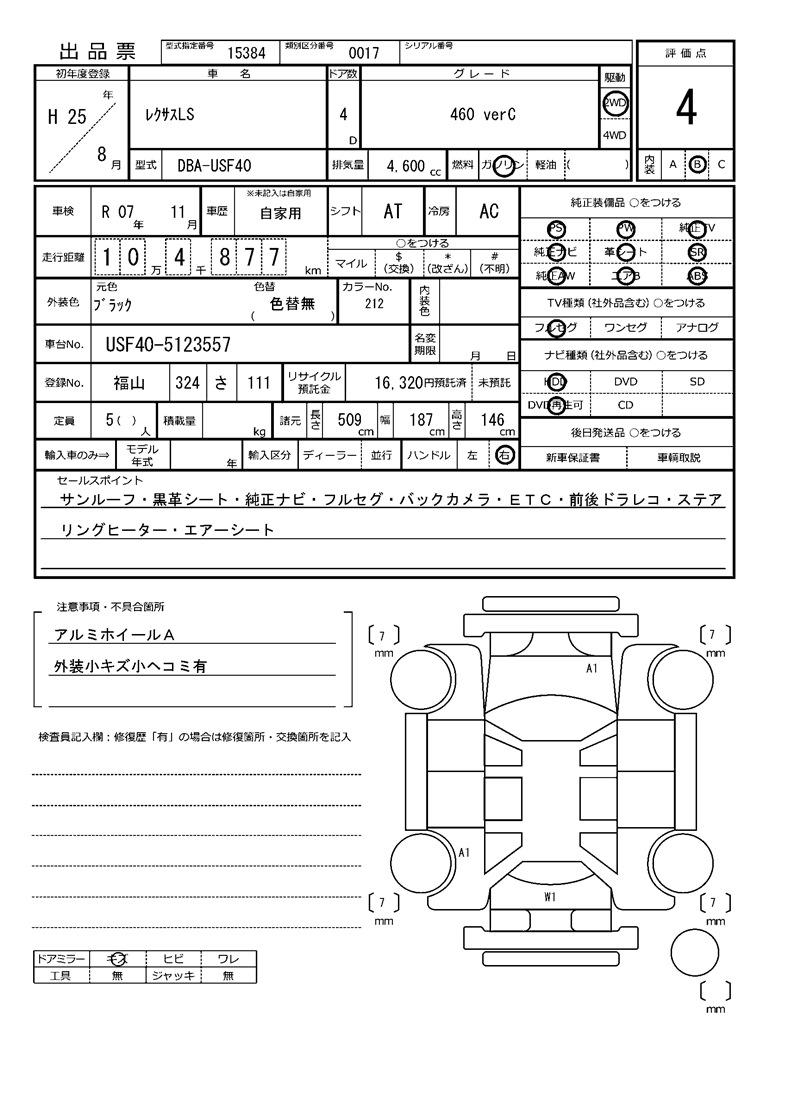 出品票 型式指定番号 15384 類別区分番号 0017 シリアル番号
初年度登録 車名 ドア数 グレード 駆動 評価点
H 25 年 8 月 レクサスLS 4 D 460 verC 2WD 4WD 4
型式 DBA-USF40 排気量 4,600 cc 燃料 ガソリン 軽油 ( ) 内装 A B C
車検 R 07 年 11 月 車歴 ※未記入は自家用 自家用 シフト AT 冷房 AC
走行距離 1 0 万 4 千 8 7 7 km ○をつける マイル $ (交換) * (改ざん) # (不明)
外装色 元色 ブラック 色替 ( 色替無 ) カラーNo. 212 内装色
車台No. USF40-5123557 名変期限 月 日
登録No. 福山 324 さ 111 リサイクル預託金 16,320円預託済 未預託
定員 5 ( ) 人 積載量 kg 諸元 長さ 509 cm 幅 187 cm 高さ 146 cm
輸入車のみ⇒ モデル年式 年 輸入区分 ディーラー 並行 ハンドル 左 右
純正装備品 ○をつける
PS PW 純正TV
純正ナビ 革シート SR
純正AW エアB ABS
TV種類 (社外品含む) ○をつける
フルセグ ワンセグ アナログ
ナビ種類 (社外品含む) ○をつける
HDD DVD SD
DVD再生可 CD
後日発送品 ○をつける
新車保証書 車輌取説
セールスポイント
サンルーフ・黒革シート・純正ナビ・フルセグ・バックカメラ・ETC・前後ドラレコ・ステア
リングヒーター・エアーシート
注意事項・不具合箇所
アルミホイールA
外装小キズ小ヘコミ有
検査員記入欄:修復歴「有」の場合は修復箇所・交換箇所を記入
ドアミラー キズ ヒビ ワレ
工具 無 ジャッキ 無
7 mm
7 mm
A1
A1
W1
7 mm
7 mm
mm